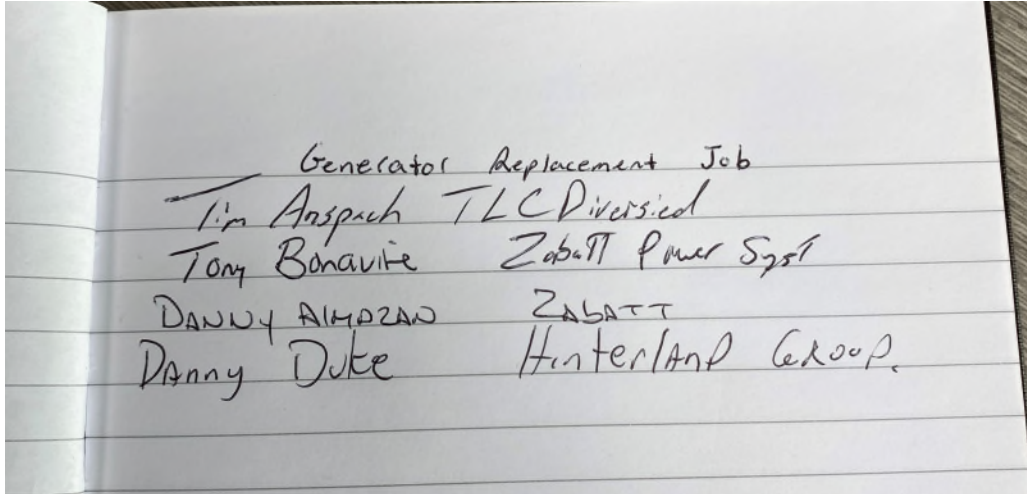 Generator Replacement Job
Tim Anspach TLC Diversied
Tony Bonavite Zabatt Power Syst
DANNY AlMAZAN ZAbATT
DAnny Duke HinterlAnD GRoup.